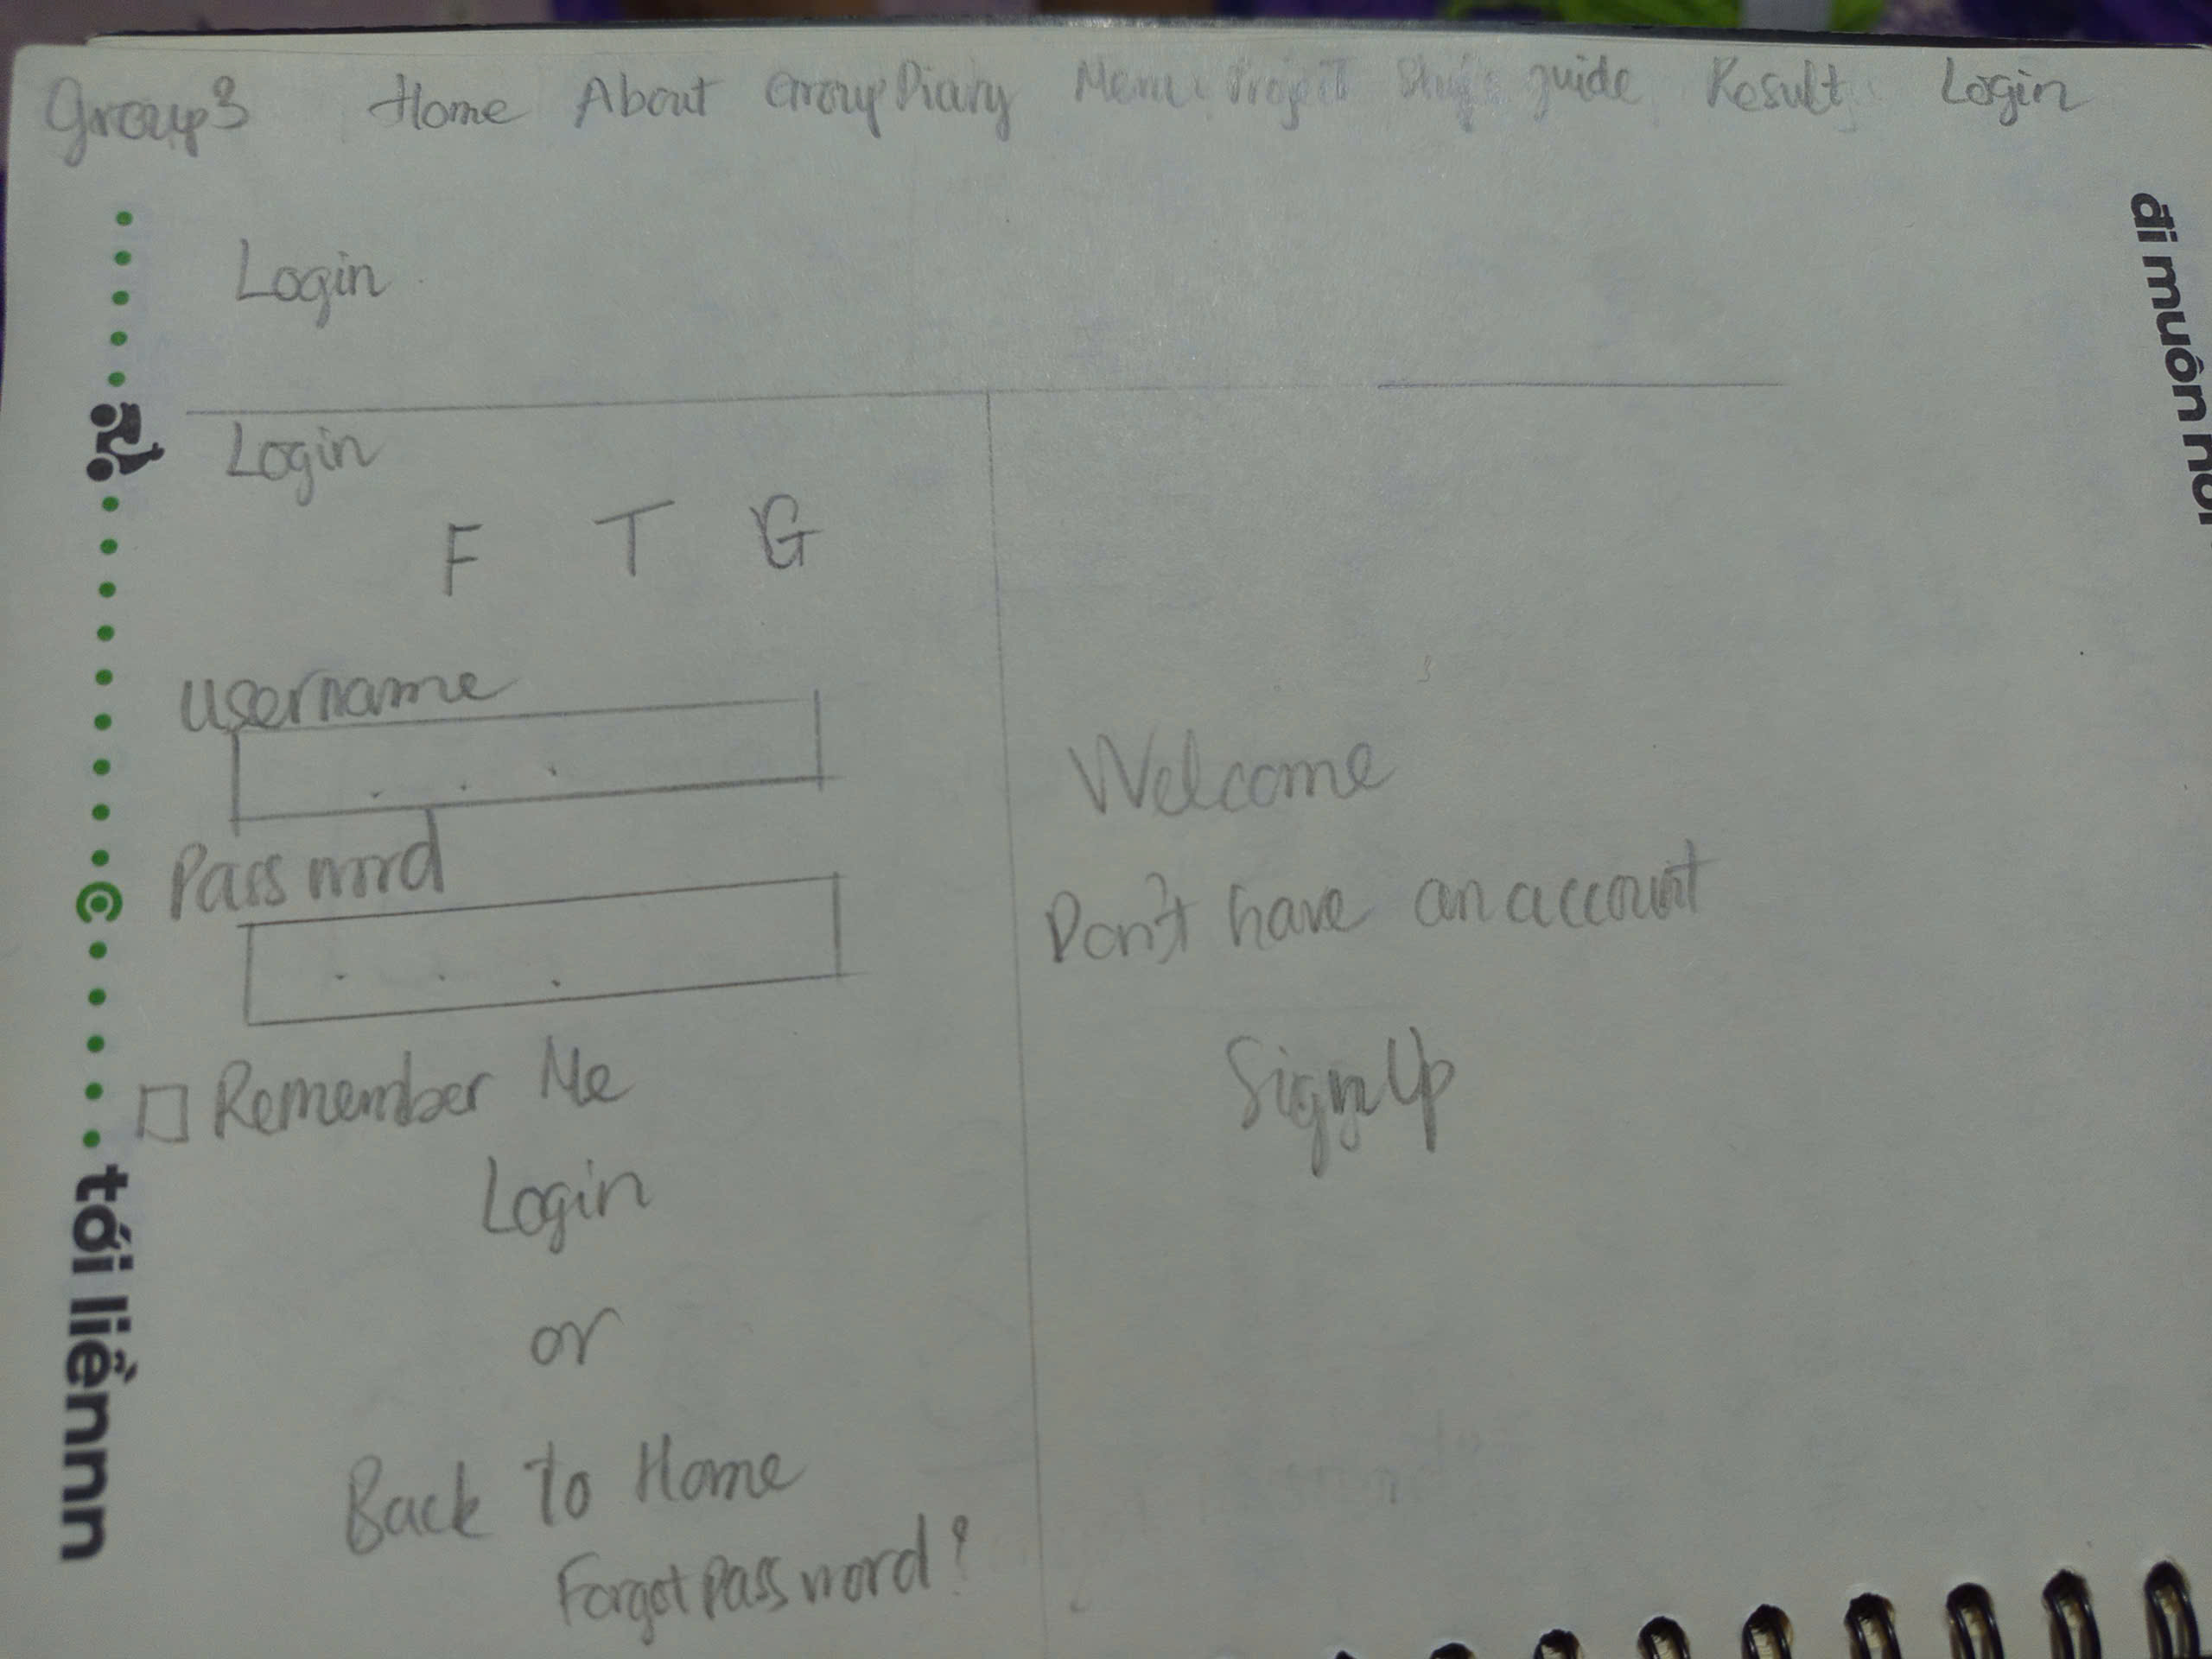 Group 3 Home About Group Diary Menu Project guide Result Login
Login
Login
F T G
username
Password
Remember Me
Login
or
Back to Home
Forgot password?
Welcome
Don't have an account
Sign Up
tới liềnnn
đi muôn nơi